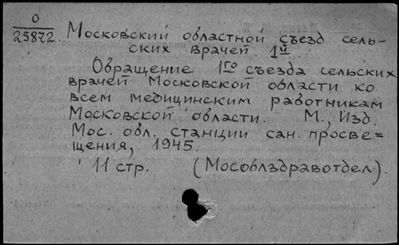 О
25872. Московский областной съезд сель-
ских врачей 1й.
Обращение 1го съезда сельских
врачей Московской области ко
всем медицинским работникам
Московской области. М., Изд.
Мос. обл. станции сан. просве=
щения, 1945.
11 стр. (Мособлздравотдел).